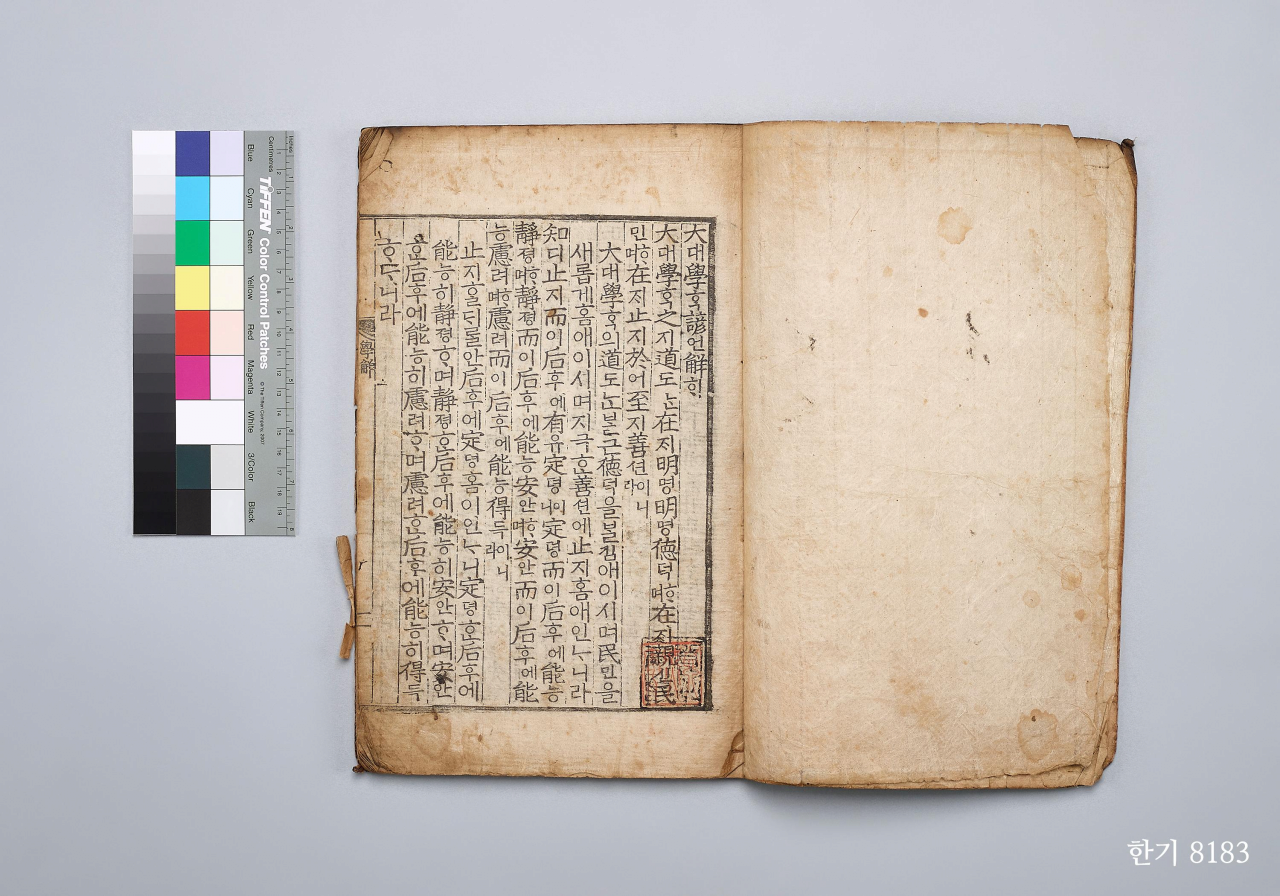 大대學ᄒᆞᆨ諺언解ᄒᆡ
大대學ᄒᆞᆨ之지道도ᄂᆞᆫ在ᄌᆡ明명明명德덕ᄒᆞ며在ᄌᆡ親신民
민ᄒᆞ며在ᄌᆡ止지於어至지善션이니라
大대學ᄒᆞᆨ의道도ᄂᆞᆫᄇᆞᆯ근德덕을ᄇᆞᆯ킴애이시며民민을
새롭게홈애이시며지극ᄒᆞᆫ善션에止지홈애인ᄂᆞ니라
知디止지而이后후에有유定뎡이니定뎡而이后후에能능
靜졍ᄒᆞ며靜졍而이后후에能능安안ᄒᆞ며安안而이后후에能
능慮려ᄒᆞ며慮려而이后후에能능得득이니라
止지ᄒᆞᆯᄃᆡᄅᆞᆯ안后후에定뎡홈이인ᄂᆞ니定뎡ᄒᆞᆫ后후에
能능히靜졍ᄒᆞ며靜졍ᄒᆞᆫ后후에能능히安안ᄒᆞ며安안
ᄒᆞᆫ后후에能능히慮려ᄒᆞ며慮려ᄒᆞᆫ后후에能능히得득
ᄒᆞᄂᆞ니라
學解
Inches
Centimetres
TIFFEN Color Control Patches
© The Tiffen Company, 2007
Blue
Cyan
Green
Yellow
Red
Magenta
White
3/Color
Black
한기 8183